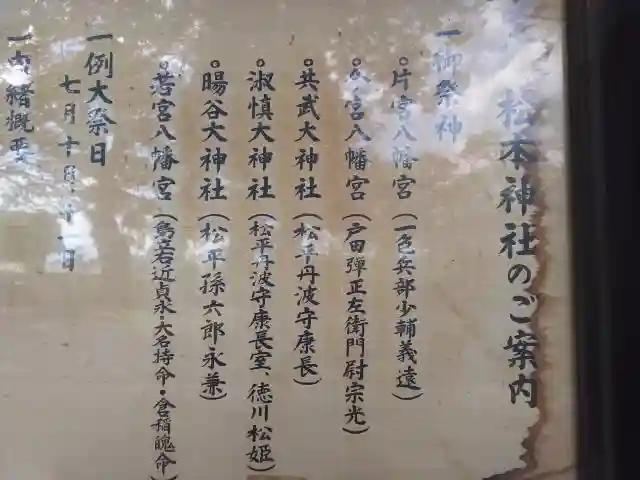 松本神社のご案内
一御祭神
片宮八幡宮(一色兵部少輔義遠)
宮八幡宮(戸田弾正左衛門尉宗光)
共武大神社(松平丹波守康長)
淑慎大神社(松平丹波守康長室、徳川松姫)
暘谷大神社(松平孫六郎永兼)
若宮八幡宮(島立右近貞永・大名持命・倉稲魄命)
一例大祭日
七月十日・十一日
一由緒概要